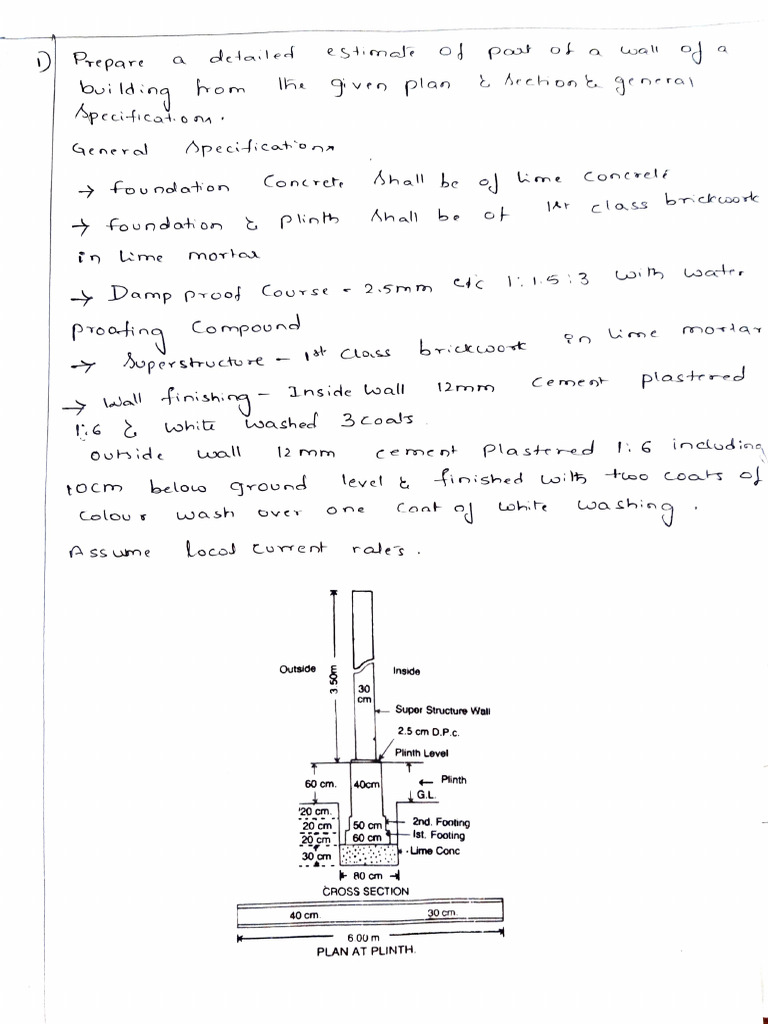 1) Prepare a detailed estimate of part of a wall of a
building from the given plan & section & general
specifications.
General specifications
→ foundation Concrete shall be of lime concrete
→ foundation & plinth shall be of 1st class brickwork
in lime mortar
→ Damp proof Course - 2.5mm c/c 1:1.5:3 with water
proofing Compound
→ Superstructure - 1st Class brickwork in lime mortar
→ Wall finishing - Inside wall 12mm cement plastered
1:6 & white washed 3 coats
outside wall 12mm cement plastered 1:6 including
10cm below ground level & finished with two coats of
colour wash over one coat of white washing.
Assume local current rates.
Outside
3.50m
Inside
30
cm
Super Structure Wall
2.5 cm D.P.c.
Plinth Level
60 cm.
40cm
Plinth
G.L.
20 cm.
20 cm
50 cm
2nd. Footing
20 cm
60 cm
Ist. Footing
30 cm
Lime Conc
80 cm
CROSS SECTION
40 cm.
30 cm.
6.00 m
PLAN AT PLINTH.